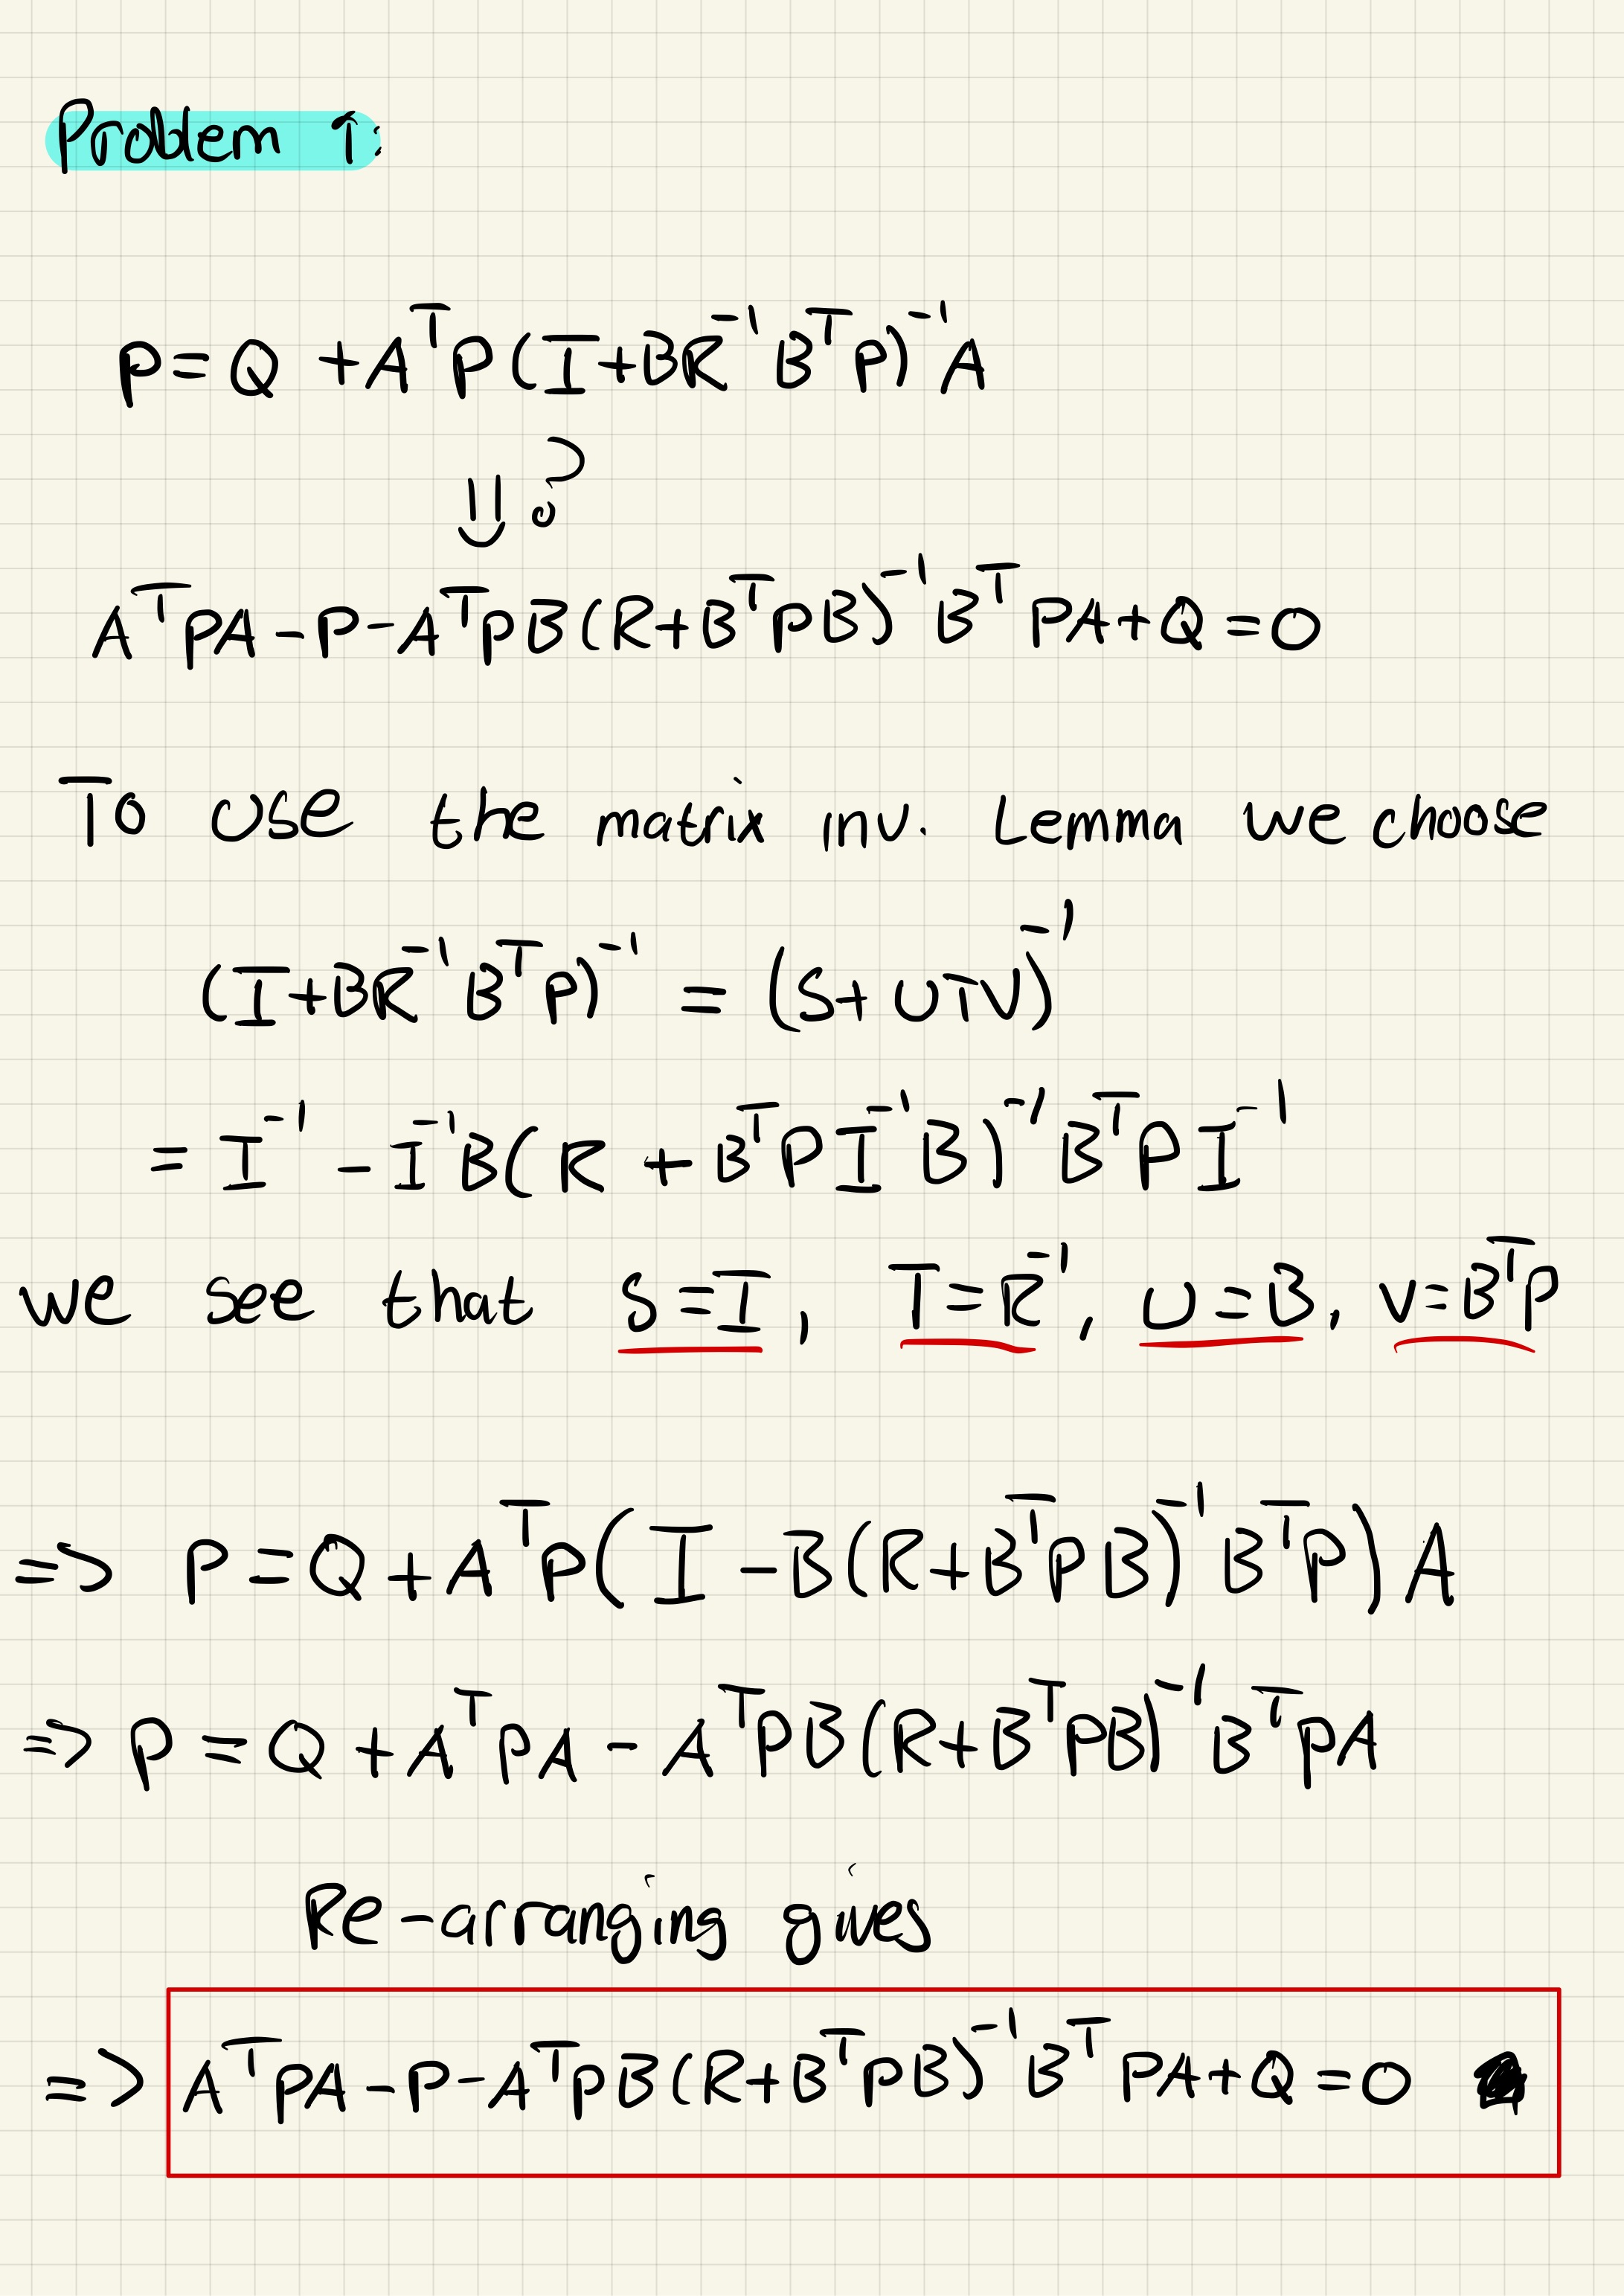 Problem 1:
P = Q + AᵀP(I + BR⁻¹BᵀP)⁻¹A
⇓ ?
AᵀPA - P - AᵀPB(R + BᵀPB)⁻¹BᵀPA + Q = 0
To use the matrix inv. Lemma we choose
(I + BR⁻¹BᵀP)⁻¹ = (S + UTV)⁻¹
= I⁻¹ - I⁻¹B(R + BᵀPI⁻¹B)⁻¹BᵀPI⁻¹
we see that S = I, T = R⁻¹, U = B, V = BᵀP
=> P = Q + AᵀP(I - B(R + BᵀPB)⁻¹BᵀP)A
=> P = Q + AᵀPA - AᵀPB(R + BᵀPB)⁻¹BᵀPA
Re-arranging gives
=> AᵀPA - P - AᵀPB(R + BᵀPB)⁻¹BᵀPA + Q = 0